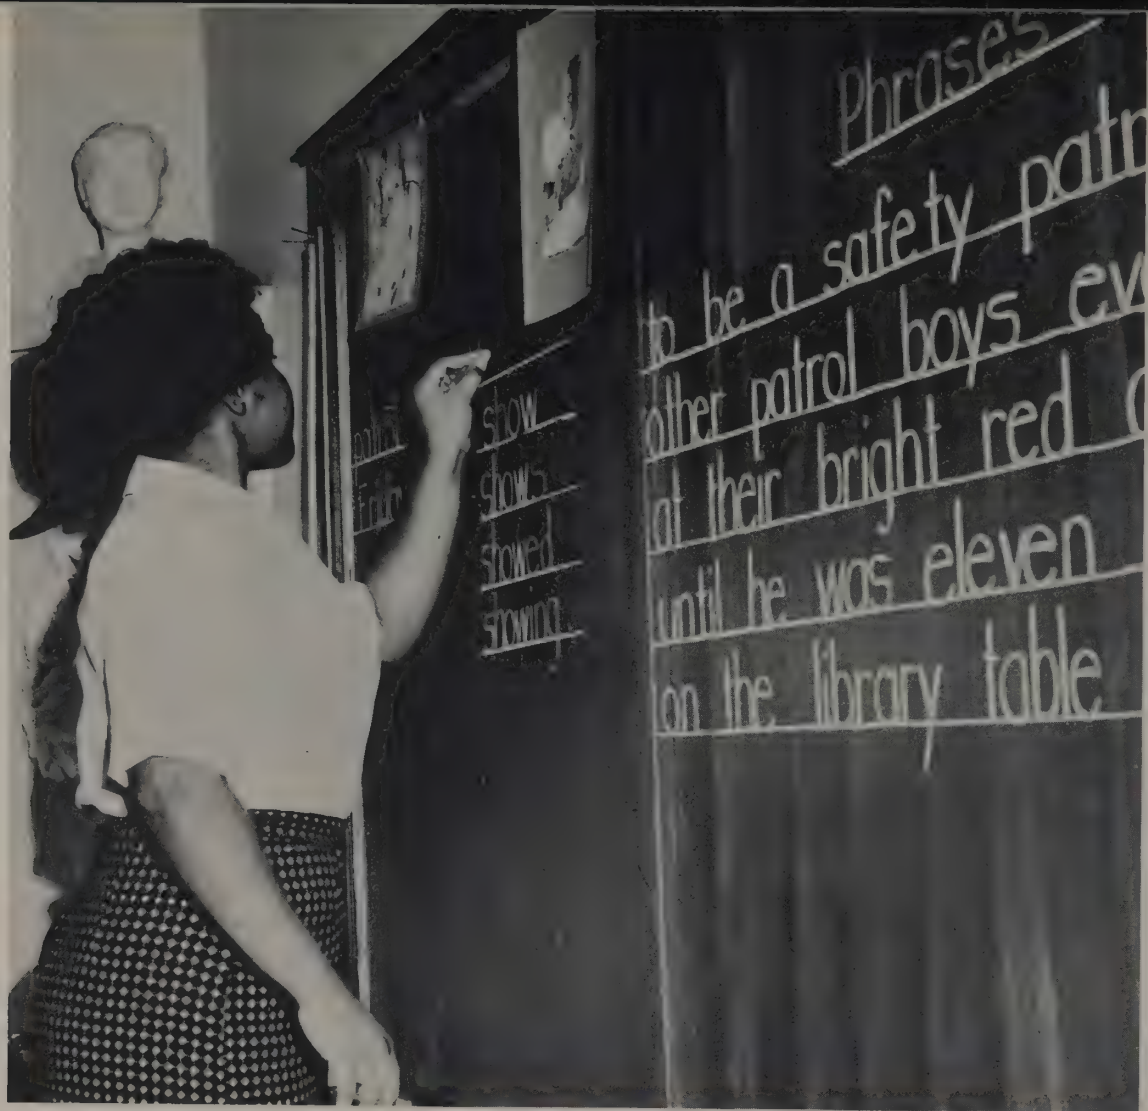 Phrases
to be a safety patr
other patrol boys ev
at their bright red
until he was eleven
on the library table
show
shows
showed
showing